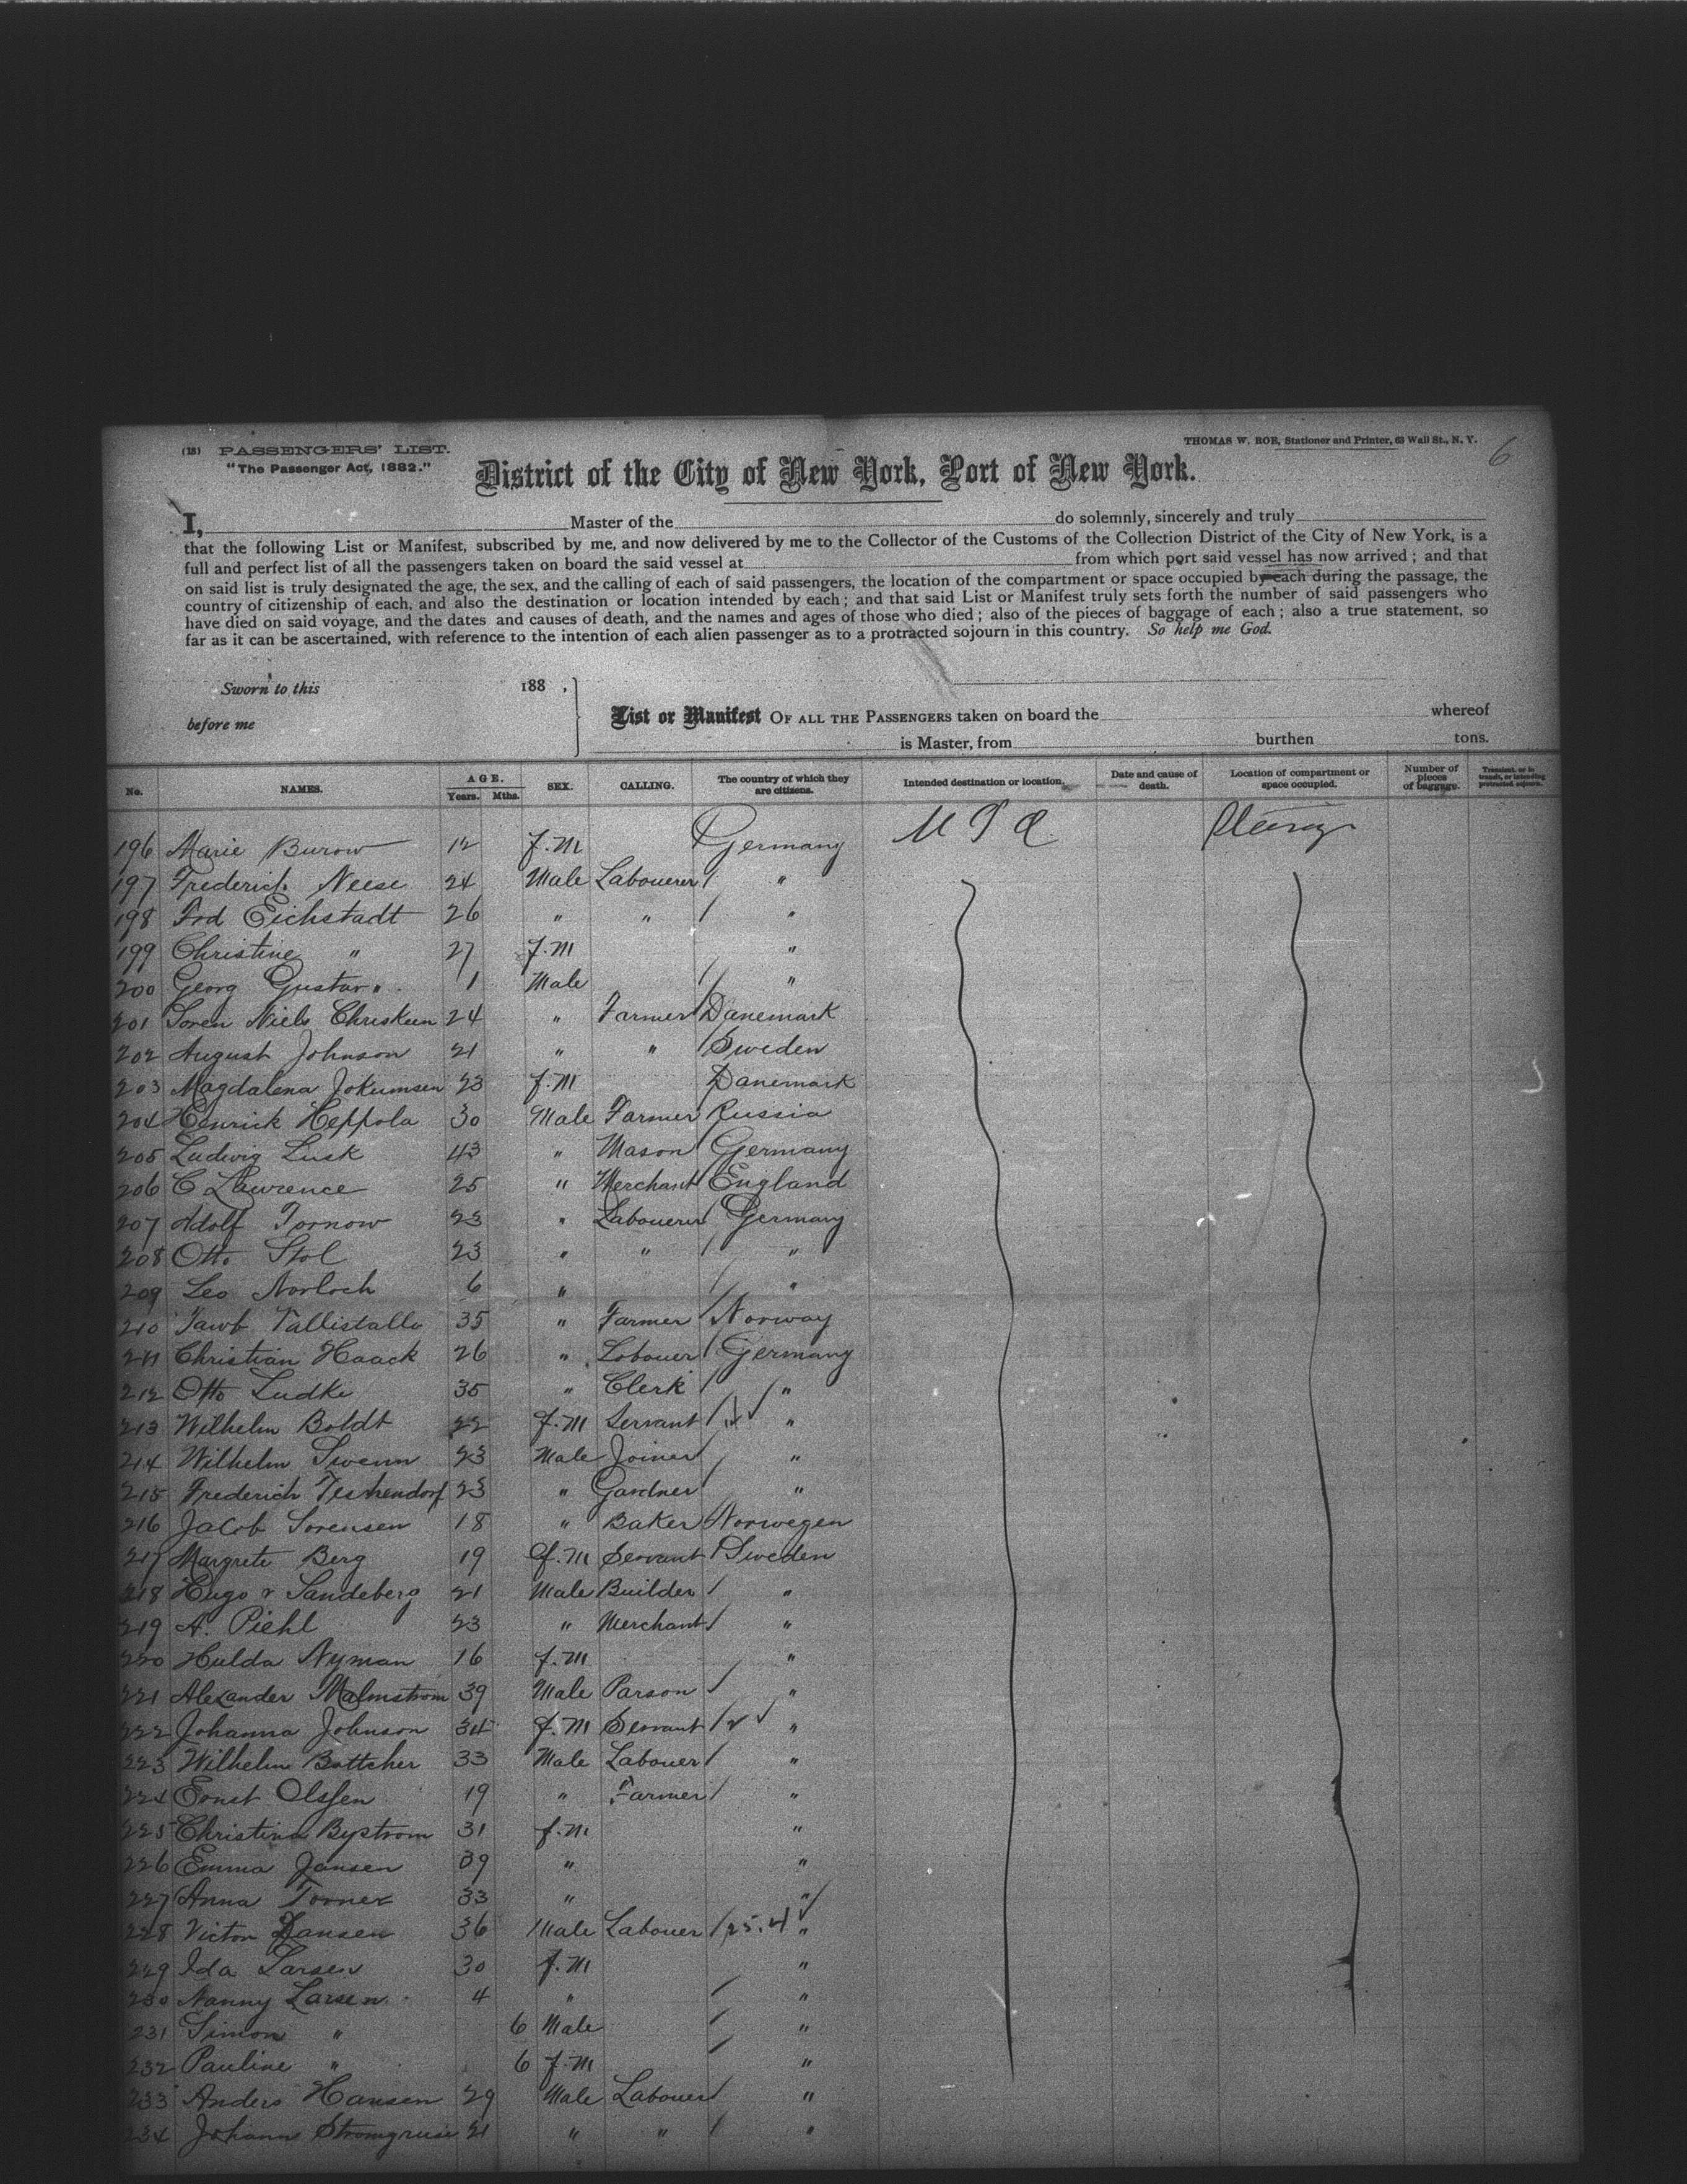 (13) PASSENGERS' LIST.
THOMAS W. ROE, Stationer and Printer, 63 Wall St., N. Y.
6
"The Passenger Act, 1882."
District of the City of New York, Port of New York.
I, Master of the do solemnly, sincerely and truly
that the following List or Manifest, subscribed by me, and now delivered by me to the Collector of the Customs of the Collection District of the City of New York, is a
full and perfect list of all the passengers taken on board the said vessel at from which port said vessel has now arrived; and that
on said list is truly designated the age, the sex, and the calling of each of said passengers, the location of the compartment or space occupied by each during the passage, the
country of citizenship of each, and also the destination or location intended by each; and that said List or Manifest truly sets forth the number of said passengers who
have died on said voyage, and the dates and causes of death, and the names and ages of those who died; also of the pieces of baggage of each; also a true statement, so
far as it can be ascertained, with reference to the intention of each alien passenger as to a protracted sojourn in this country. So help me God.
Sworn to this 188 ,
before me
List or Manifest OF ALL THE PASSENGERS taken on board the whereof
is Master, from burthen tons.
No. NAMES. AGE. Years. Mths. SEX. CALLING. The country of which they are citizens. Intended destination or location. Date and cause of death. Location of compartment or space occupied. Number of pieces of baggage. Transient, or in transit, or intending protracted sojourn.
196 Marie Burow 12 f.m Germany U S A
197 Frederich Neese 24 Male Labouerer "
198 Frd Eichstadt 26 " " "
199 Christine " 27 f.m "
200 Georg Gustav " 1 Male "
201 Soren Niels 24 " Farmer Danemark
202 August Johnson 21 " " Sweden
203 Magdalena Jokumsen 23 f.m Danemark
204 Henrick Heppola 30 Male Farmer Russia
205 Ludwig Lusk 43 " Mason Germany
206 C Lawrence 25 " Merchant England
207 Adolf Tornow 23 " Labouerer Germany
208 Otto Stol 23 " " "
209 Leo Norloch 6 " "
210 35 " Farmer Norway
211 Christian Haack 26 " Labouer Germany
212 Otto Ludke 35 " Clerk "
213 Wilhelm Boldt 22 f.m Servant "
214 Wilhelm Swenn 23 Male Joiner "
215 Frederich Teshendorf 23 " Gardner "
216 Jacob Sorensen 18 " Baker Norwegen
217 Margrete Berg 19 f.m Servant Sweden
218 Hugo v Sandeberg 21 Male Builder "
219 A. Piehl 23 " Merchant "
220 Hulda Nyman 16 f.m "
221 Alexander Malmstrom 39 Male Parson "
222 Johanna Johnson 34 f.m Servant "
223 Wilhelm Bottcher 33 Male Labouer "
224 Ernst Olssen 19 " Farmer "
225 Christina Bystrom 31 f.m "
226 Emma Jansen 39 " "
227 Anna Torner 33 " "
228 Victor Hansen 36 Male Labouer "
229 Ida Larsen 30 f.m "
230 Nanny Larsen 4 " "
231 Simon " 6 Male "
232 Pauline " 6 f.m "
233 Anders Hansen 29 Male Labouer "
234 Johann 21 " " "